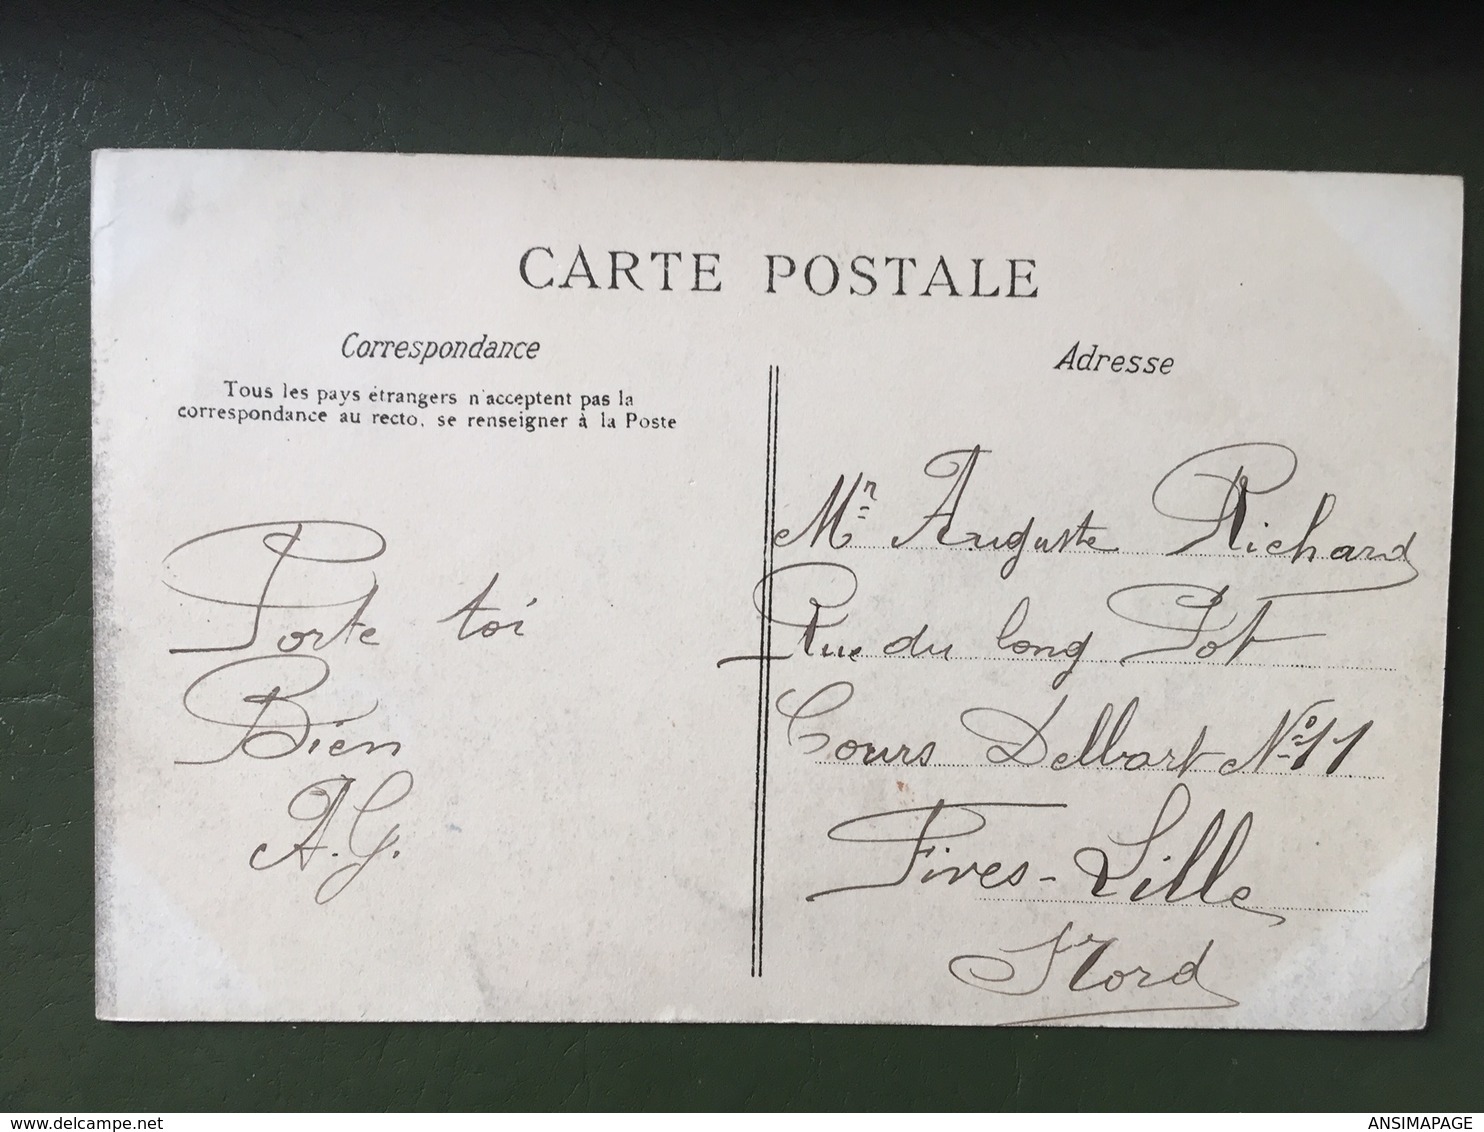 CARTE POSTALE
Correspondance
Tous les pays étrangers n'acceptent pas la
correspondance au recto, se renseigner à la Poste
Porte toi
Bien
A.G.
Adresse
Mr Auguste Richard
Rue du long Pot
Cours Delbart No 11
Fives-Lille
Nord
www.delcampe.net
ANSIMAPAGE